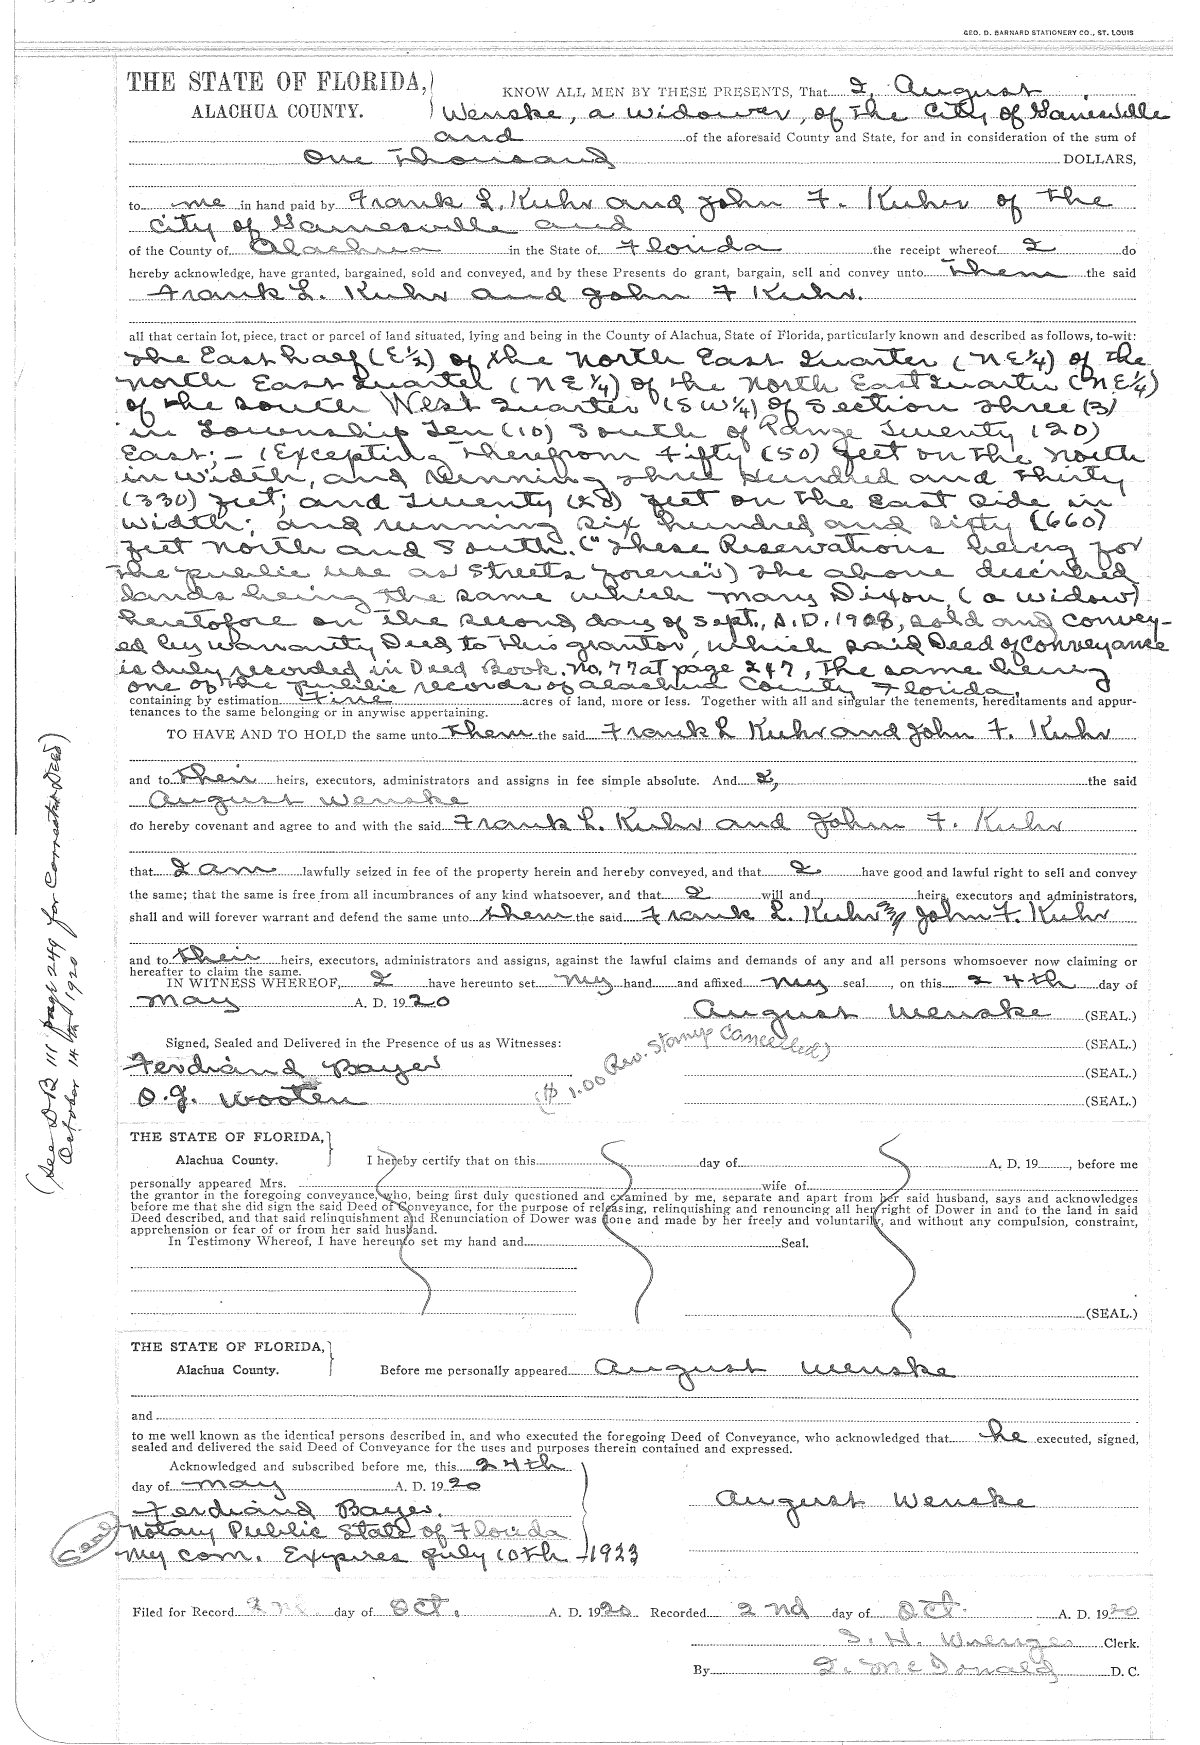 GEO. D. BARNARD STATIONERY CO., ST. LOUIS
THE STATE OF FLORIDA,
ALACHUA COUNTY.
KNOW ALL MEN BY THESE PRESENTS, That I, August
Wenske, a widower, of the City of Gainesville
and of the aforesaid County and State, for and in consideration of the sum of
One Thousand DOLLARS,
to me in hand paid by Frank L. Kuhr and John F. Kuhr of the
City of Gainesville and
of the County of Alachua in the State of Florida the receipt whereof I do
hereby acknowledge, have granted, bargained, sold and conveyed, and by these Presents do grant, bargain, sell and convey unto Them the said
Frank L. Kuhr and John F Kuhr.
all that certain lot, piece, tract or parcel of land situated, lying and being in the County of Alachua, State of Florida, particularly known and described as follows, to-wit:
The East half (E½) of the North East Quarter (NE¼) of the
North East Quarter (NE¼) of the North East Quarter (NE¼)
of the South West Quarter (SW¼) of Section Three (3)
in Township Ten (10) South of Range Twenty (20)
East; - (Excepting therefrom Fifty (50) feet on the North
in width, and running Three Hundred and Thirty
(330) feet; and Twenty (20) feet on the East Side in
width; and running Six hundred and sixty (660)
feet North and South. ("These Reservations being for
the public use as Streets forever") The above described
lands being the same which Mary Dixon, (a widow)
heretofore on the second day of Sept., A.D. 1908, sold and convey-
ed by warranty Deed to this grantor, which said Deed of Conveyance
is duly recorded in Deed Book. No. 77 at page 247, the same being
one of the public records of Alachua County Florida.
containing by estimation Five acres of land, more or less. Together with all and singular the tenements, hereditaments and appur-
tenances to the same belonging or in anywise appertaining.
TO HAVE AND TO HOLD the same unto Them the said Frank L Kuhr and John F. Kuhr
and to their heirs, executors, administrators and assigns in fee simple absolute. And I, the said
August Wenske
do hereby covenant and agree to and with the said Frank L. Kuhr and John F. Kuhr
that I am lawfully seized in fee of the property herein and hereby conveyed, and that I have good and lawful right to sell and convey
the same; that the same is free from all incumbrances of any kind whatsoever, and that I will and heirs, executors and administrators,
shall and will forever warrant and defend the same unto them the said Frank L. Kuhr and John F. Kuhr
and to their heirs, executors, administrators and assigns, against the lawful claims and demands of any and all persons whomsoever now claiming or
hereafter to claim the same.
IN WITNESS WHEREOF, I have hereunto set my hand and affixed my seal, on this 24th day of
May A. D. 1920
August Wenske (SEAL.)
Signed, Sealed and Delivered in the Presence of us as Witnesses: (SEAL.)
Ferdinand Bayer (SEAL.)
O. J. Wooten (SEAL.)
($1.00 Rev. Stamp Cancelled)
(See D B 111 page 249 for Corrected Deed)
October 14th 1920
THE STATE OF FLORIDA,
Alachua County.
I hereby certify that on this day of A. D. 19 , before me
personally appeared Mrs. wife of
the grantor in the foregoing conveyance, who, being first duly questioned and examined by me, separate and apart from her said husband, says and acknowledges
before me that she did sign the said Deed of Conveyance, for the purpose of releasing, relinquishing and renouncing all her right of Dower in and to the land in said
Deed described, and that said relinquishment and Renunciation of Dower was done and made by her freely and voluntarily, and without any compulsion, constraint,
apprehension or fear of or from her said husband.
In Testimony Whereof, I have hereunto set my hand and Seal.
(SEAL.)
THE STATE OF FLORIDA,
Alachua County.
Before me personally appeared August Wenske
and
to me well known as the identical persons described in, and who executed the foregoing Deed of Conveyance, who acknowledged that he executed, signed,
sealed and delivered the said Deed of Conveyance for the uses and purposes therein contained and expressed.
Acknowledged and subscribed before me, this 24th
day of May A. D. 1920
August Wenske
Ferdinand Bayer.
Notary Public State of Florida
My com. Expires July 10th - 1923
Seal
Filed for Record 2nd day of Oct. A. D. 1920 Recorded 2nd day of Oct. A. D. 1920
S. H. Wienges Clerk.
By McDonald D. C.